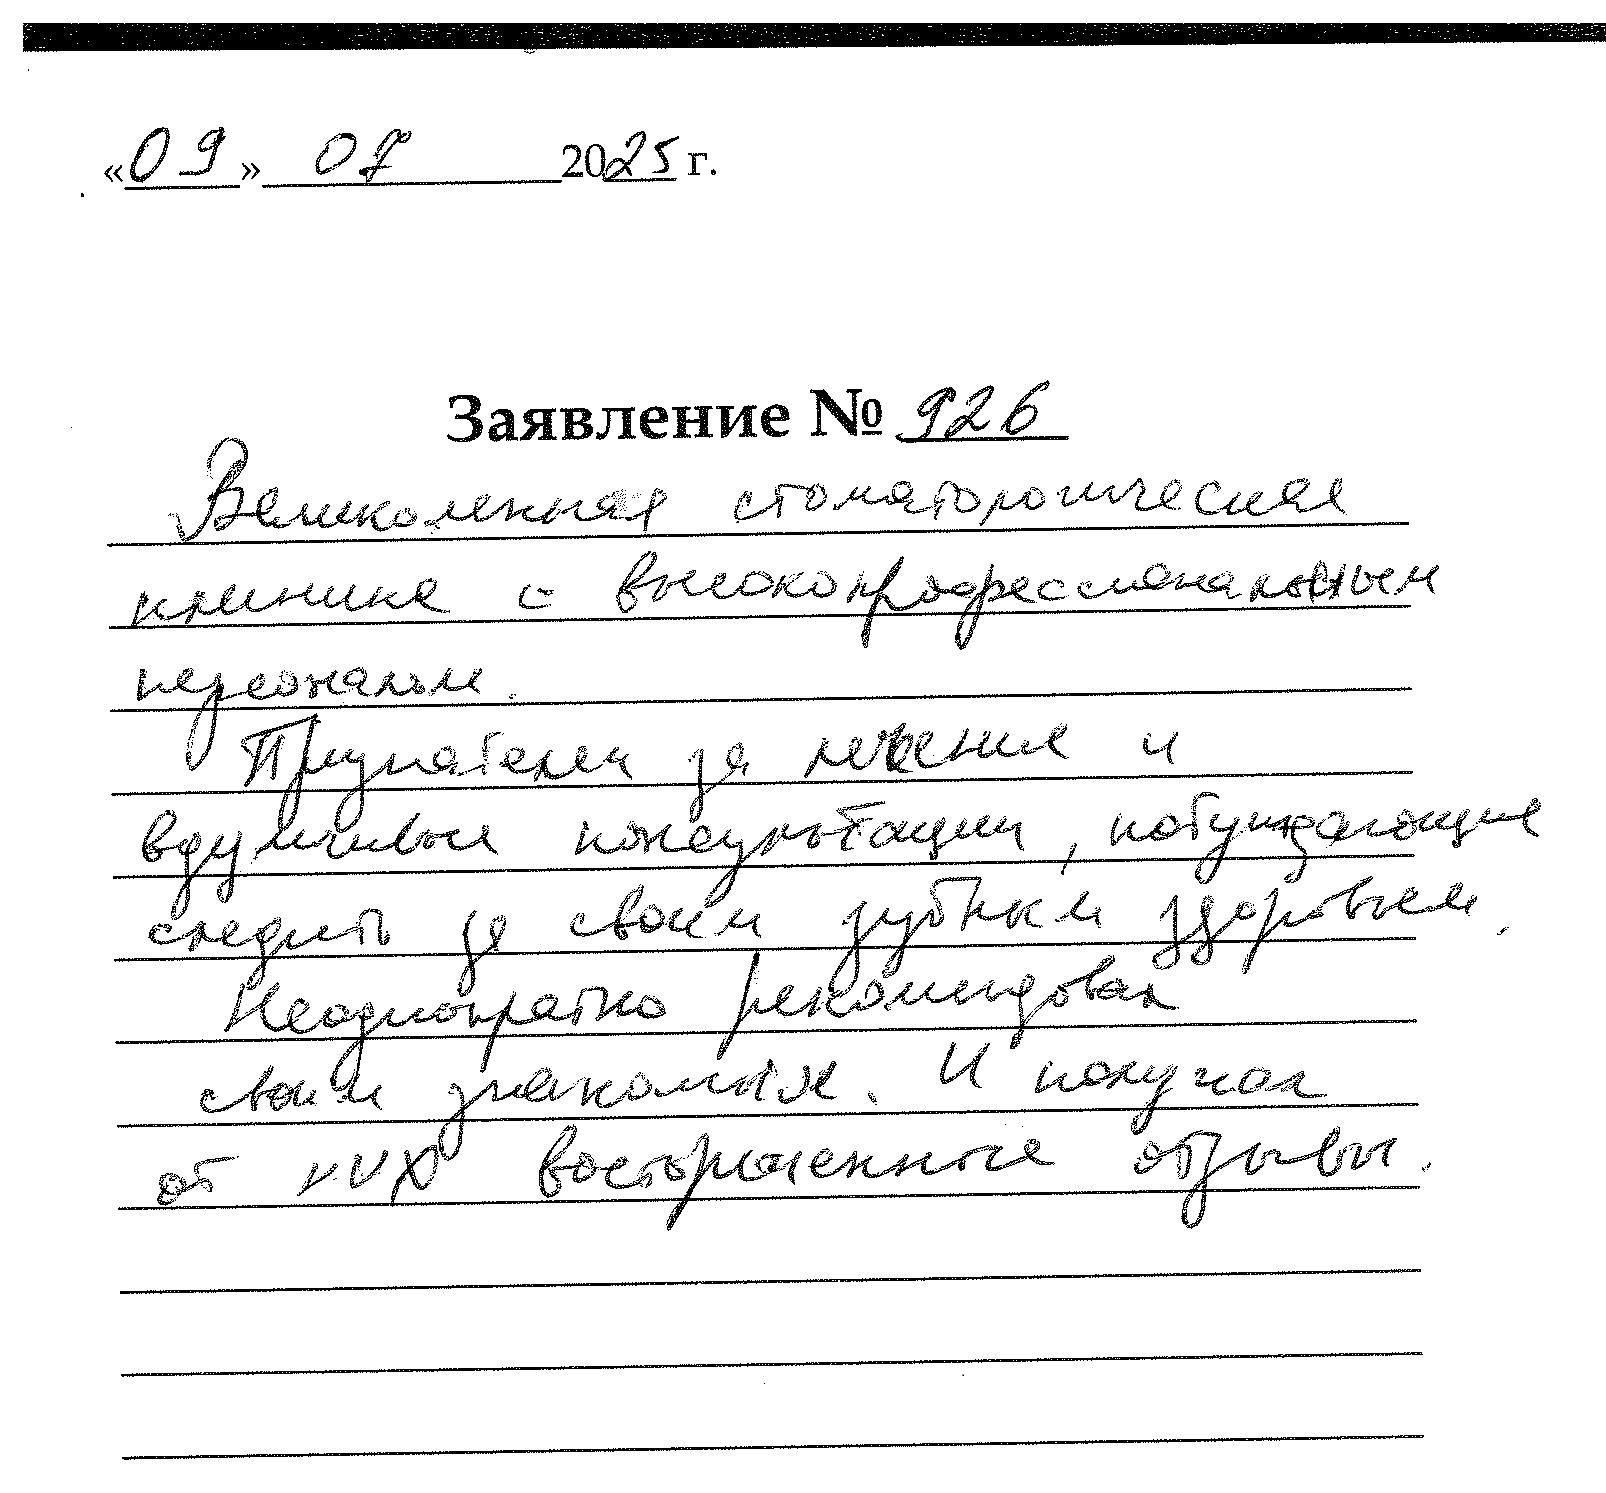 «09» 07 2025 г.
Заявление № 926
Великолепная стоматологическая
клиника с высокопрофессиональным
персоналом.
Признателен за лечение и
вдумчивые консультации, побуждающие
следить за своим зубным здоровьем.
Неоднократно рекомендовал
своим знакомым. И получал
от них восторженные отзывы.